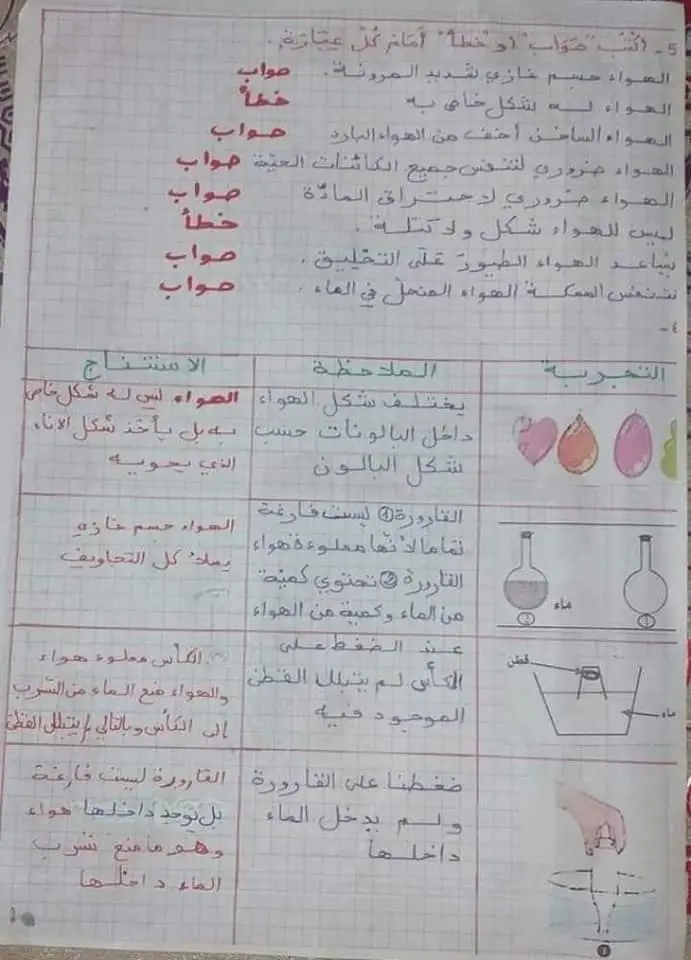 5- أكتب "صواب" أو "خطأ" أمام كلّ عبارة.
الهواء جسم غازي شديد المرونة. صواب
الهواء له شكل خاص به خطأ
الهواء الساخن أخف من الهواء البارد صواب
الهواء ضروري لتنفس جميع الكائنات الحيّة صواب
الهواء ضروري لاحتراق المادّة صواب
ليس للهواء شكل ولا كتلة. خطأ
يساعد الهواء الطيور على التحليق. صواب
تتنفس السمكة الهواء المنحلّ في الماء. صواب
٤-
التجربة الملاحظة الاستنتاج
يختلف شكل الهواء
داخل البالونات حسب
شكل البالون
الهواء ليس له شكل خاص
به بل يأخذ شكل الاناء
الذي يحويه
القارورة ① ليست فارغة
تماما لأنّها مملوءة هواء
القارورة ② تحتوي كميّة
من الماء وكمية من الهواء
الهواء جسم غازي
يملأ كل التجاويف
ماء
②
①
عند الضغط على
الكأس لم يتبلل القطن
الموجود فيه
الكأس مملوء هواء
والهواء منع الماء من التسرب
إلى الكأس وبالتالي لم يتبلل القطن
قطن
ماء
ضغطنا على القارورة
ولم يدخل الماء
داخلها
القارورة ليست فارغة
بل توجد داخلها هواء
وهو ما منع تسرب
الماء داخلها
①